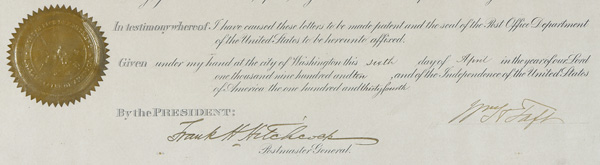 In testimony whereof I have caused these letters to be made patent and the seal of the Post Office Department
of the United States to be hereunto affixed.
Given under my hand at the city of Washington this sixth day of April in the year of our Lord
one thousand nine hundred and ten, and of the Independence of the United States
of America the one hundred and thirty fourth
By the PRESIDENT:
Wm H Taft
Frank H. Hitchcock
Postmaster General.